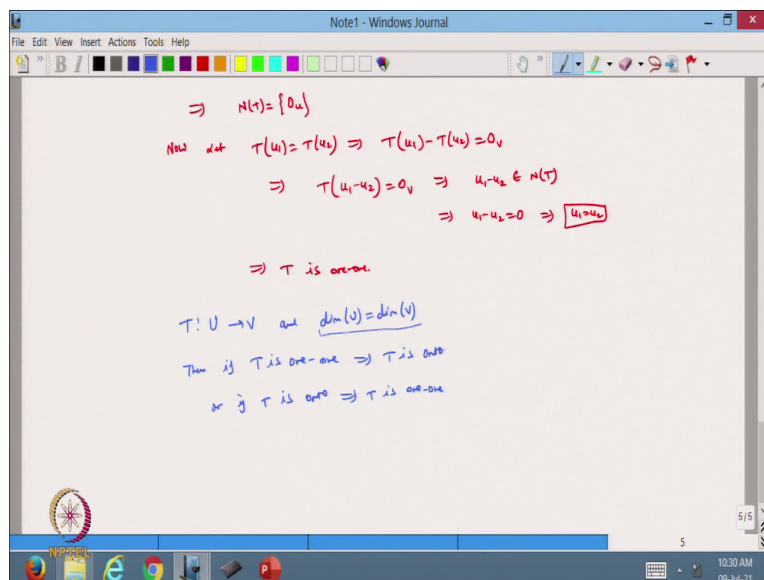 Note1 - Windows Journal
File Edit View Insert Actions Tools Help
B I
⇒ N(T) = {0u}
Now let T(u₁) = T(u₂) ⇒ T(u₁) - T(u₂) = 0v
⇒ T(u₁-u₂) = 0v ⇒ u₁-u₂ ∈ N(T)
⇒ u₁-u₂ = 0 ⇒ u₁=u₂
⇒ T is one-one.
T: U → V and dim(U) = dim(V)
Then if T is one-one ⇒ T is onto
or if T is onto ⇒ T is one-one
5/5
5
NPTEL
10:30 AM
09-Jul-21